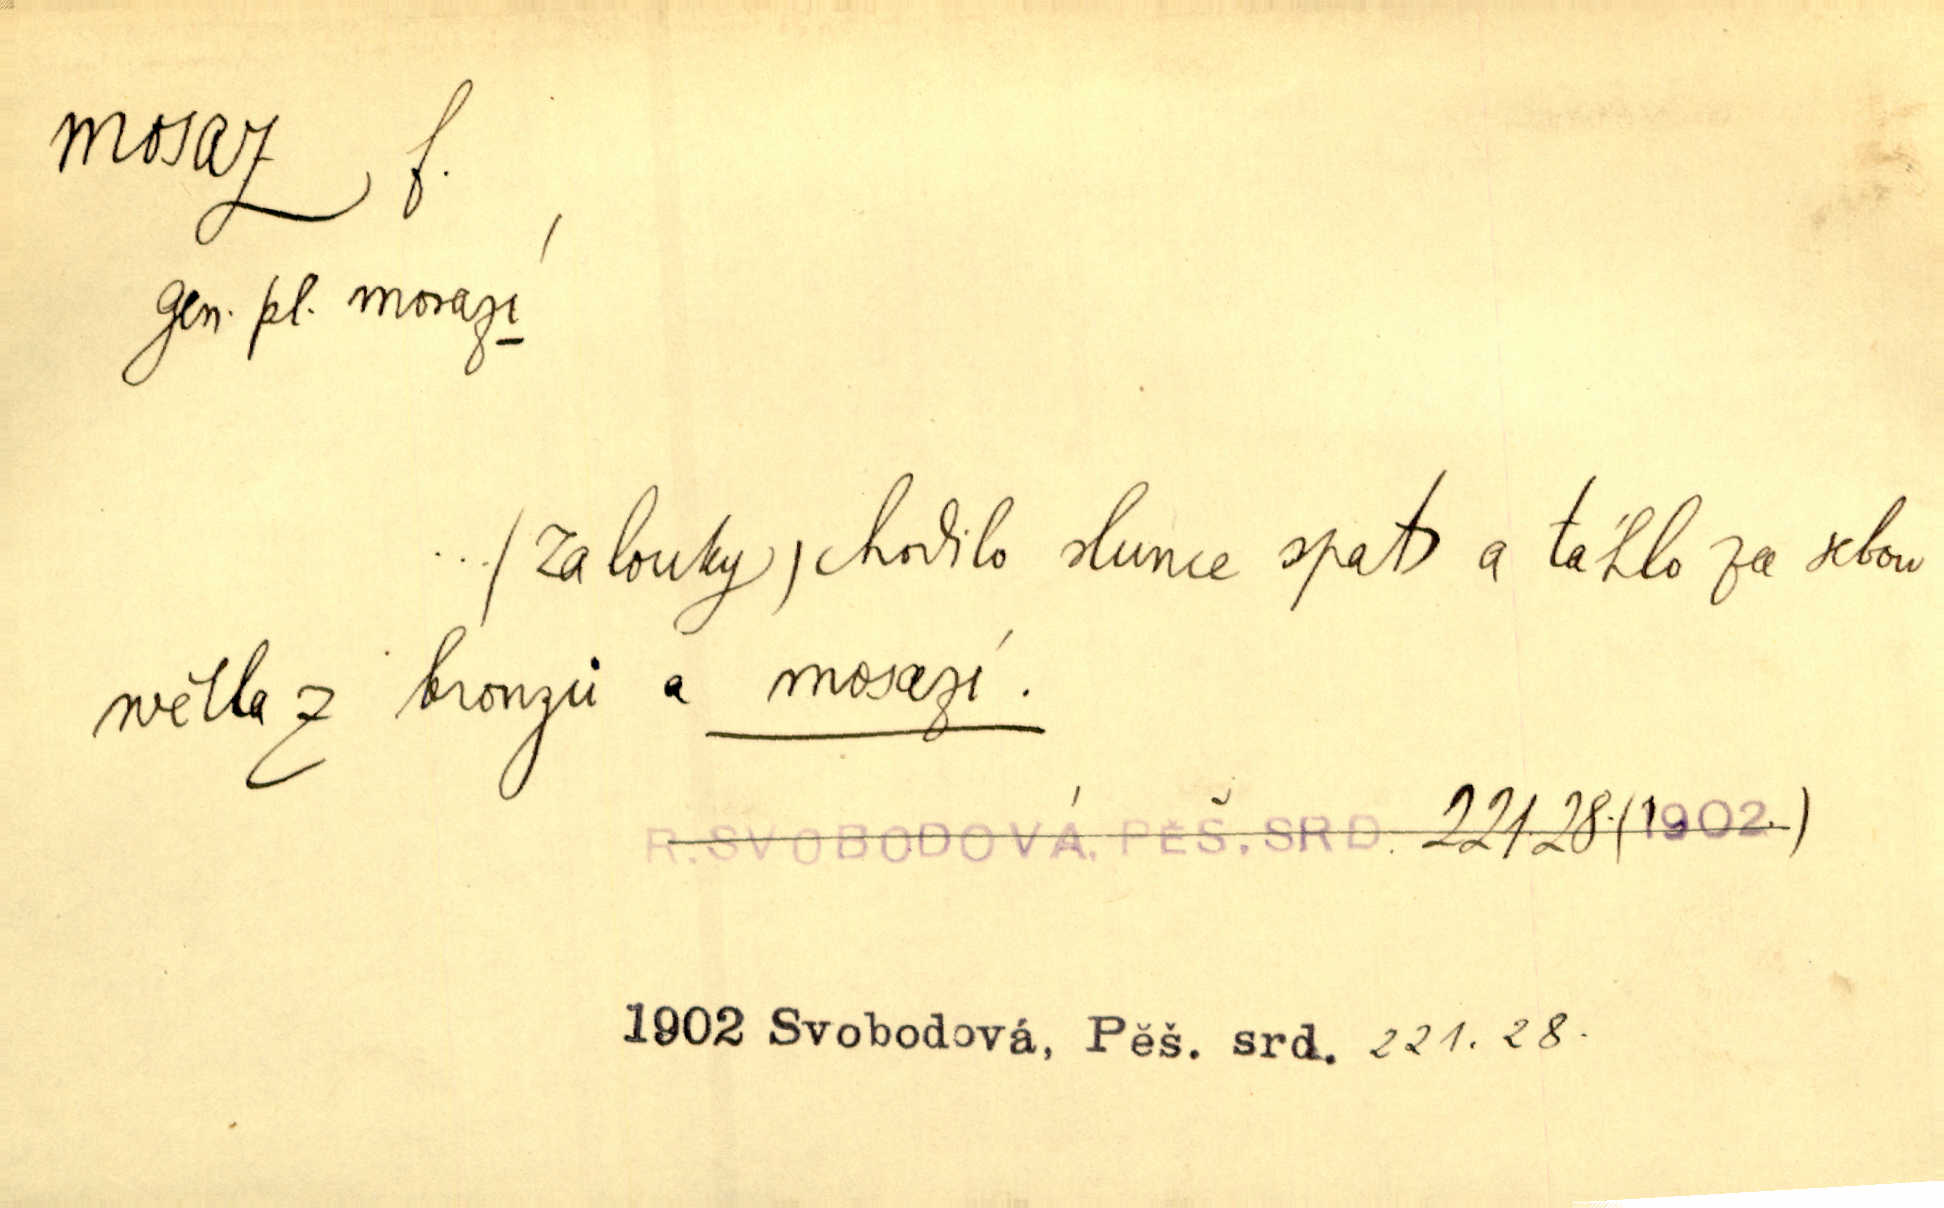 mosaz f.
gen. pl. mosazí
...(za louky) chodilo slunce spat a táhlo za sebou
světla z bronzů a mosazí.
R. SVOBODOVÁ, PĚŠ. SRD. 221.28.(1902.)
1902 Svobodová, Pěš. srd. 221. 28.